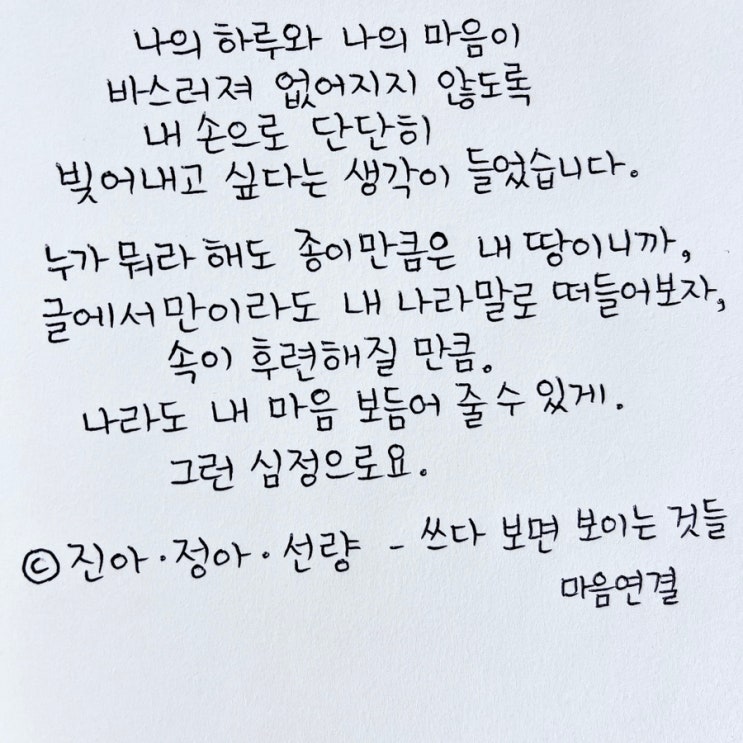 나의 하루와 나의 마음이
바스러져 없어지지 않도록
내 손으로 단단히
빚어내고 싶다는 생각이 들었습니다.
누가 뭐라 해도 종이만큼은 내 땅이니까,
글에서만이라도 내 나라말로 떠들어보자,
속이 후련해질 만큼.
나라도 내 마음 보듬어 줄 수 있게.
그런 심정으로요.
© 진아·정아·선량 - 쓰다 보면 보이는 것들
마음연결